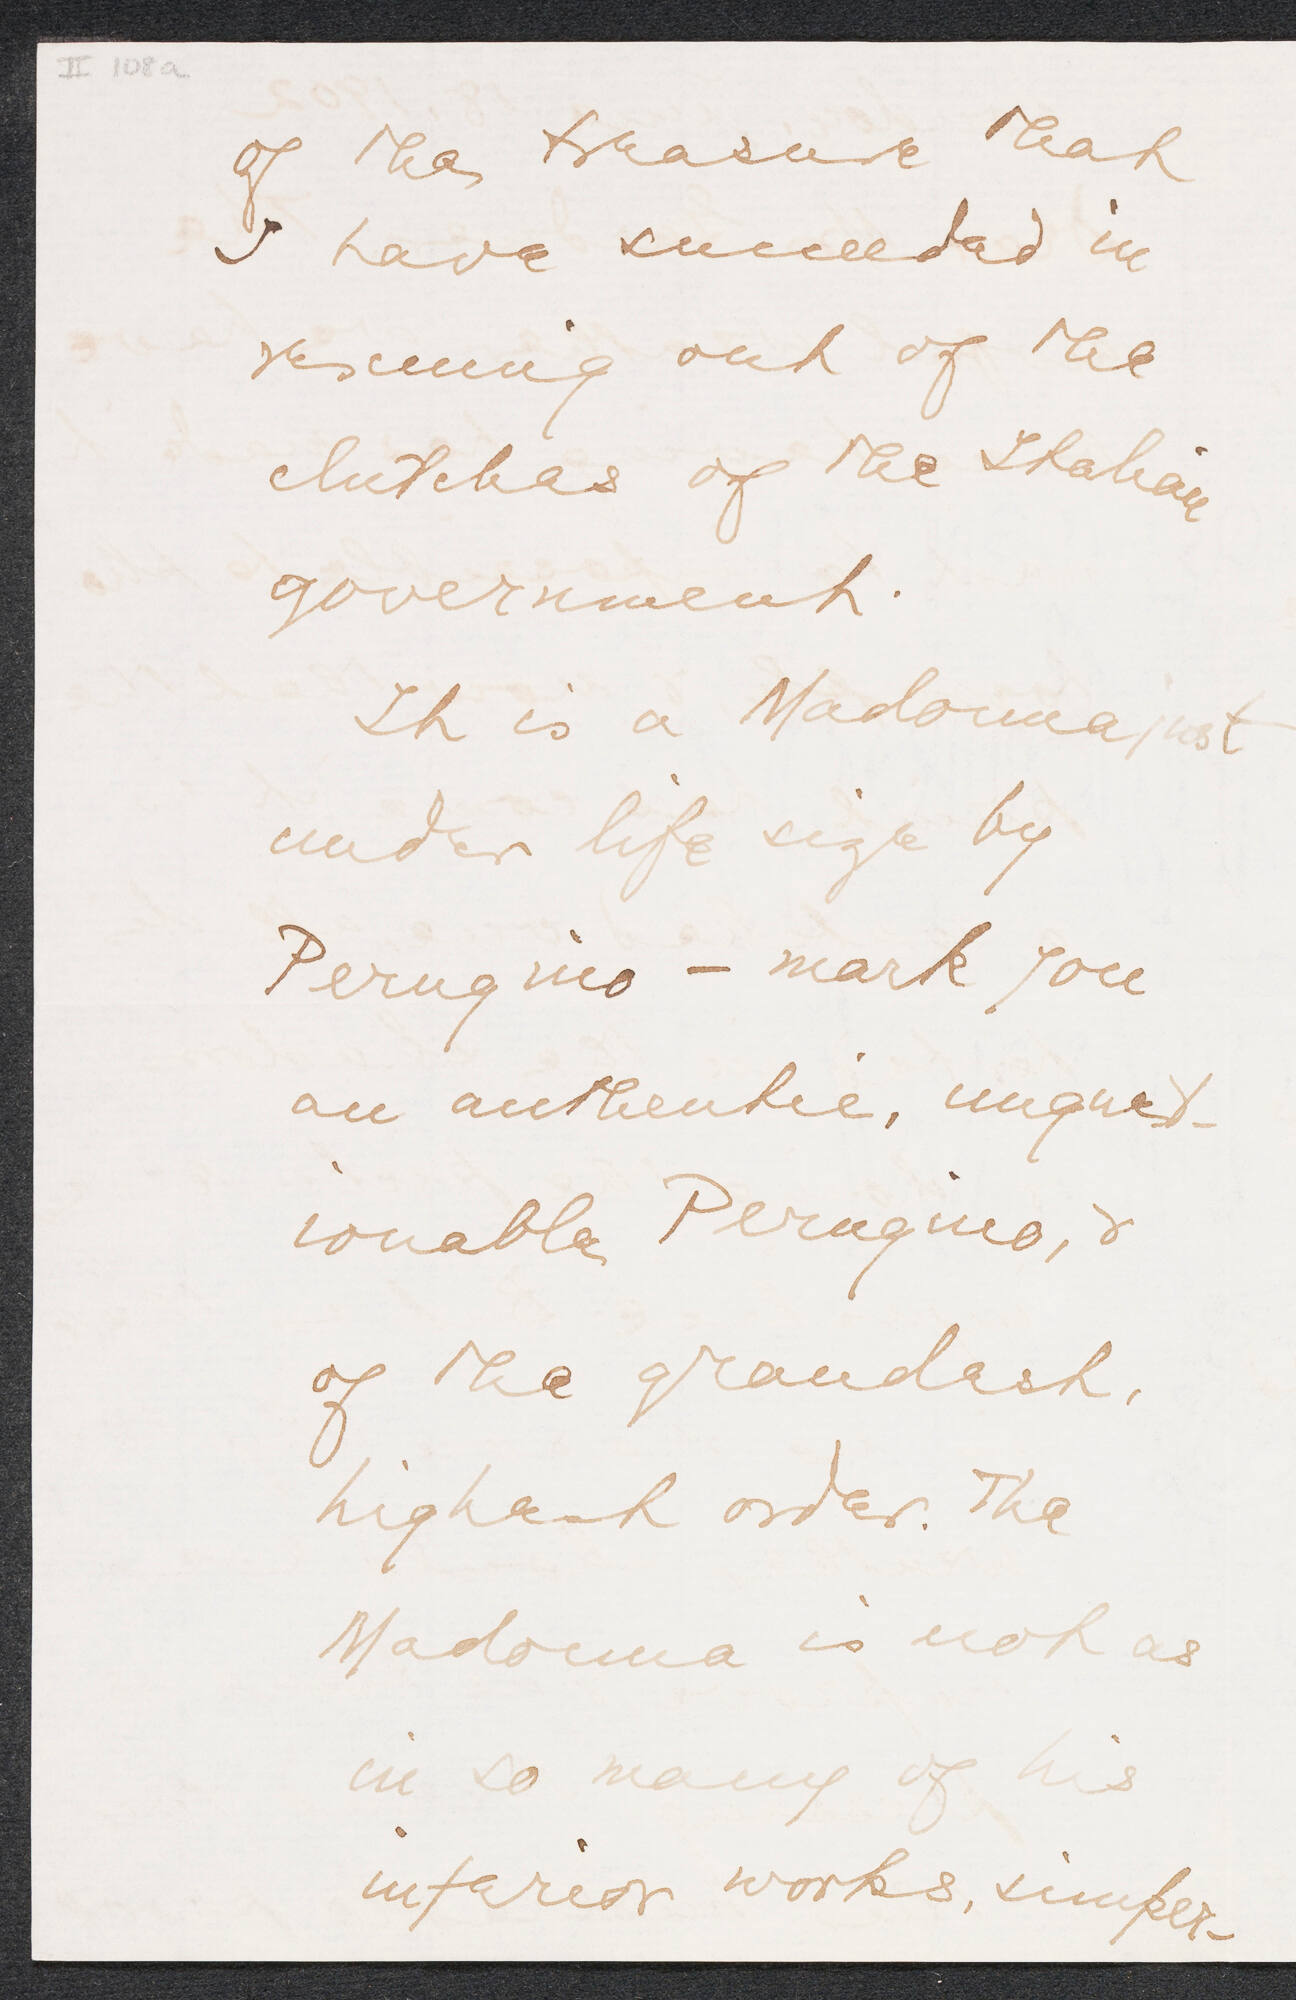 II 108a
of the treasure that
I have succeeded in
rescuing out of the
clutches of the Italian
government.
It is a Madonna just
under life size by
Perugino — mark you
an authentic, unquest-
ionable Perugino, &
of the grandest,
highest order. The
Madonna is not as
in so many of his
inferior works, simper-